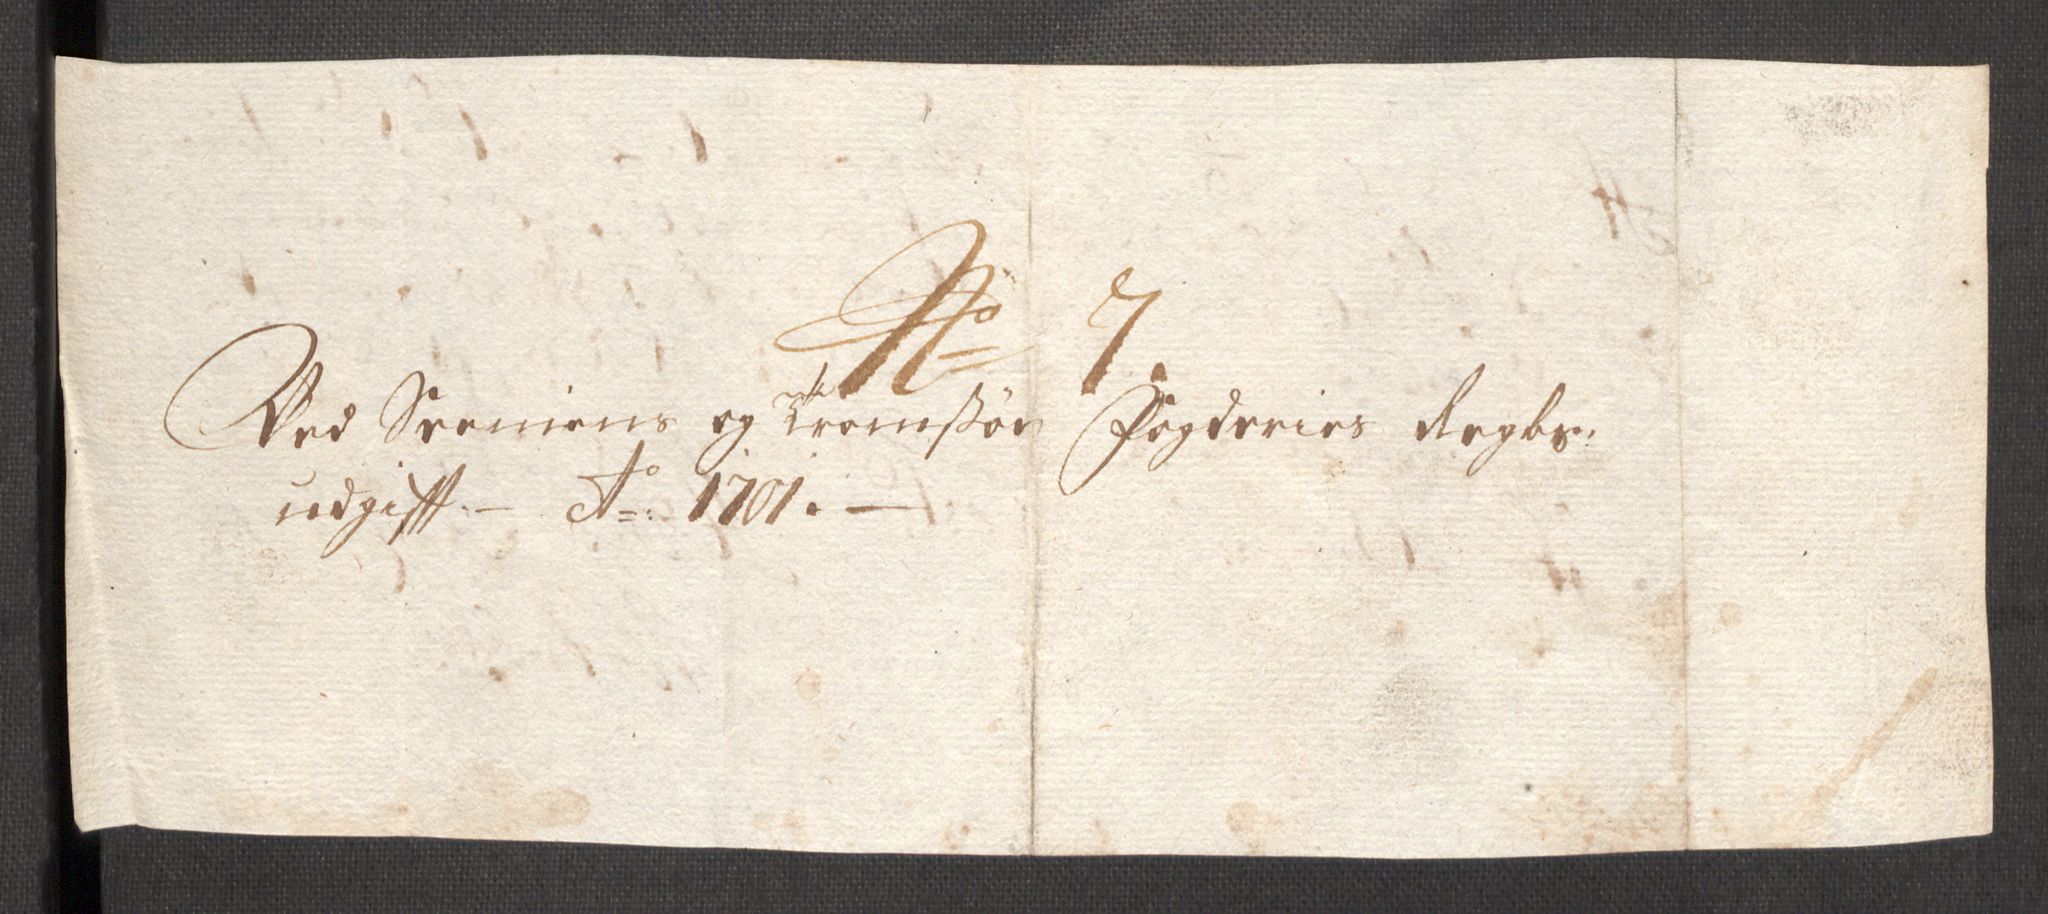 No 7.
Ved Senniens og Tromsøes Fogderies Regbs:
udgifft. — Ao: 1701. —